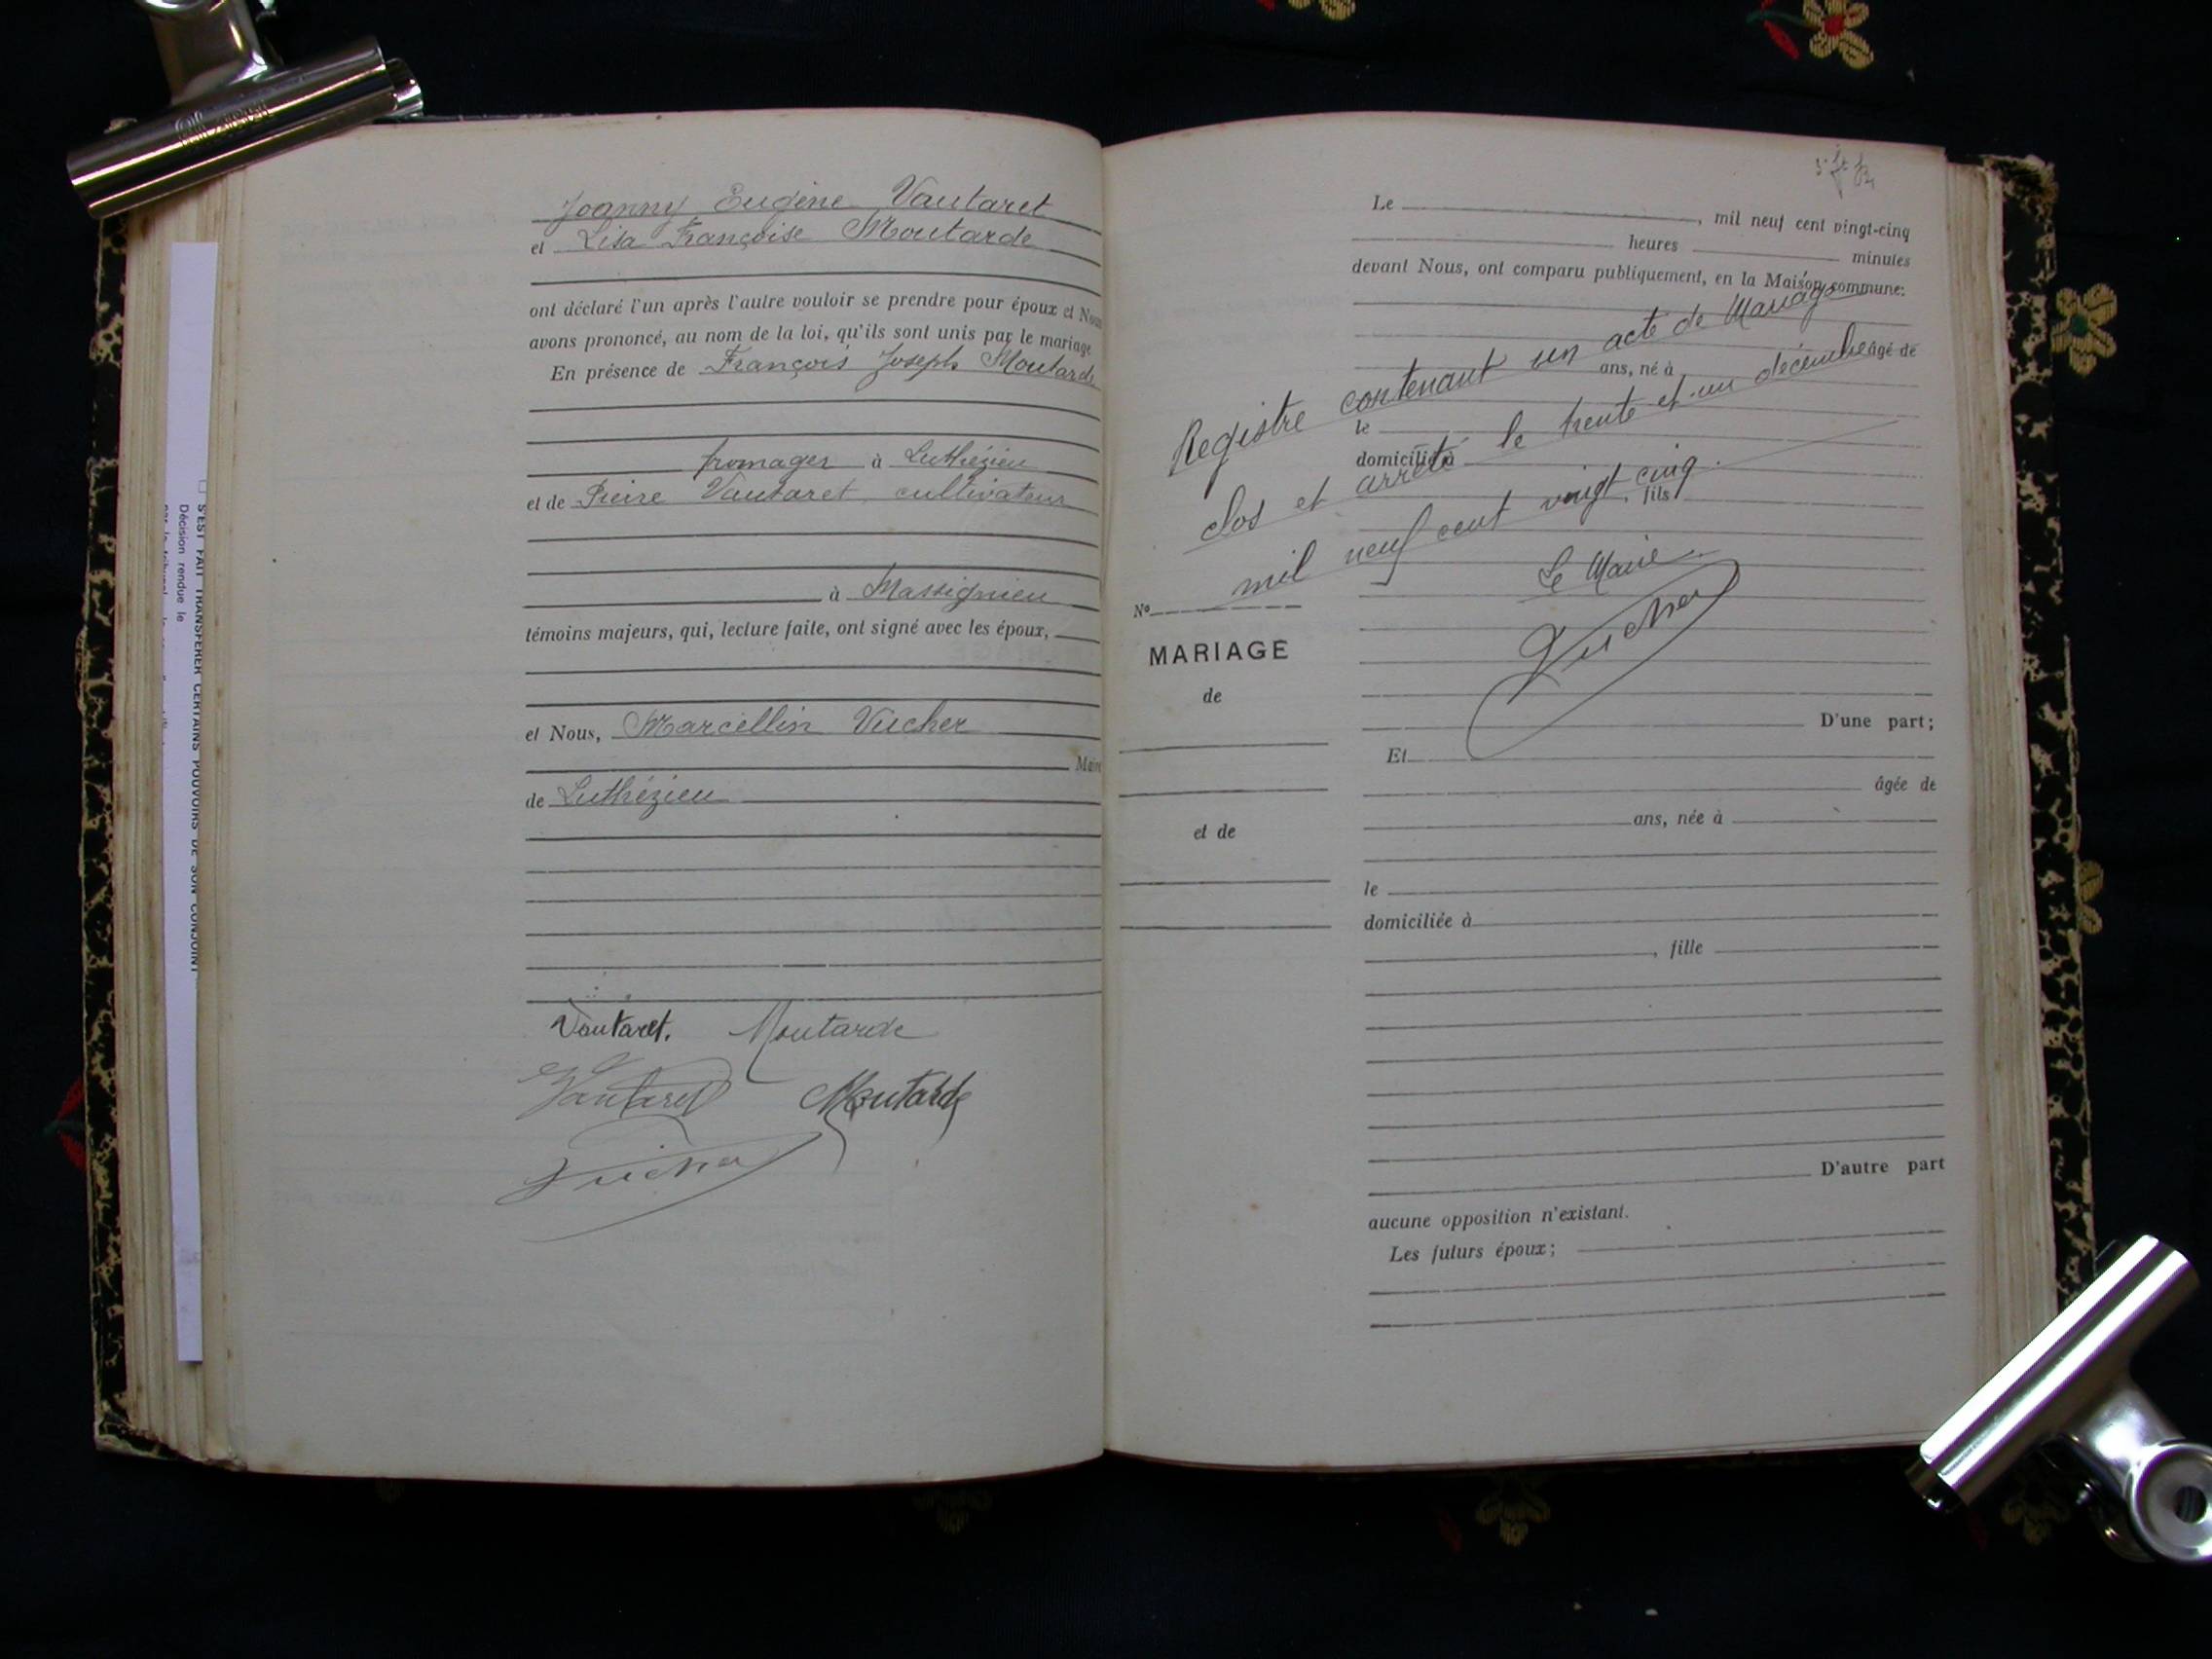 Joanny Eugène Vautaret
et Lisa Françoise Moutarde
ont déclaré l'un après l'autre vouloir se prendre pour époux et Nous
avons prononcé, au nom de la loi, qu'ils sont unis par le mariage
En présence de François Joseph Moutarde
fromager à Luthézieu
et de Pierre Vautaret cultivateur
à Massignieu
témoins majeurs, qui, lecture faite, ont signé avec les époux,
et Nous, Marcellin Vucher
Maire
de Luthézieu
Vautaret. Moutarde
Vautaret Moutarde
Vucher
S'EST FAIT TRANSFERER CERTAINS POUVOIRS DE SON CONJOINT
Décision rendue le
Le , mil neuf cent vingt-cinq
heures minutes
devant Nous, ont comparu publiquement, en la Maison commune:
âgé de
ans, né à
le
domicilié à
, fils
Registre contenant un acte de Mariage
clos et arrêté le trente et un décembre
mil neuf cent vingt cinq.
Le Maire
Vucher
No
MARIAGE
de
et de
D'une part;
Et
âgée de
ans, née à
le
domiciliée à
, fille
D'autre part
aucune opposition n'existant.
Les futurs époux;